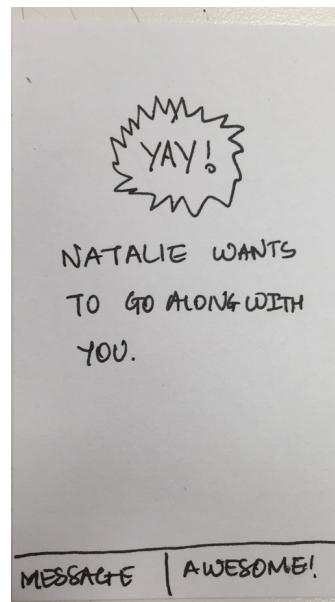 YAY!
NATALIE WANTS
TO GO ALONG WITH
YOU.
MESSAGE
AWESOME!